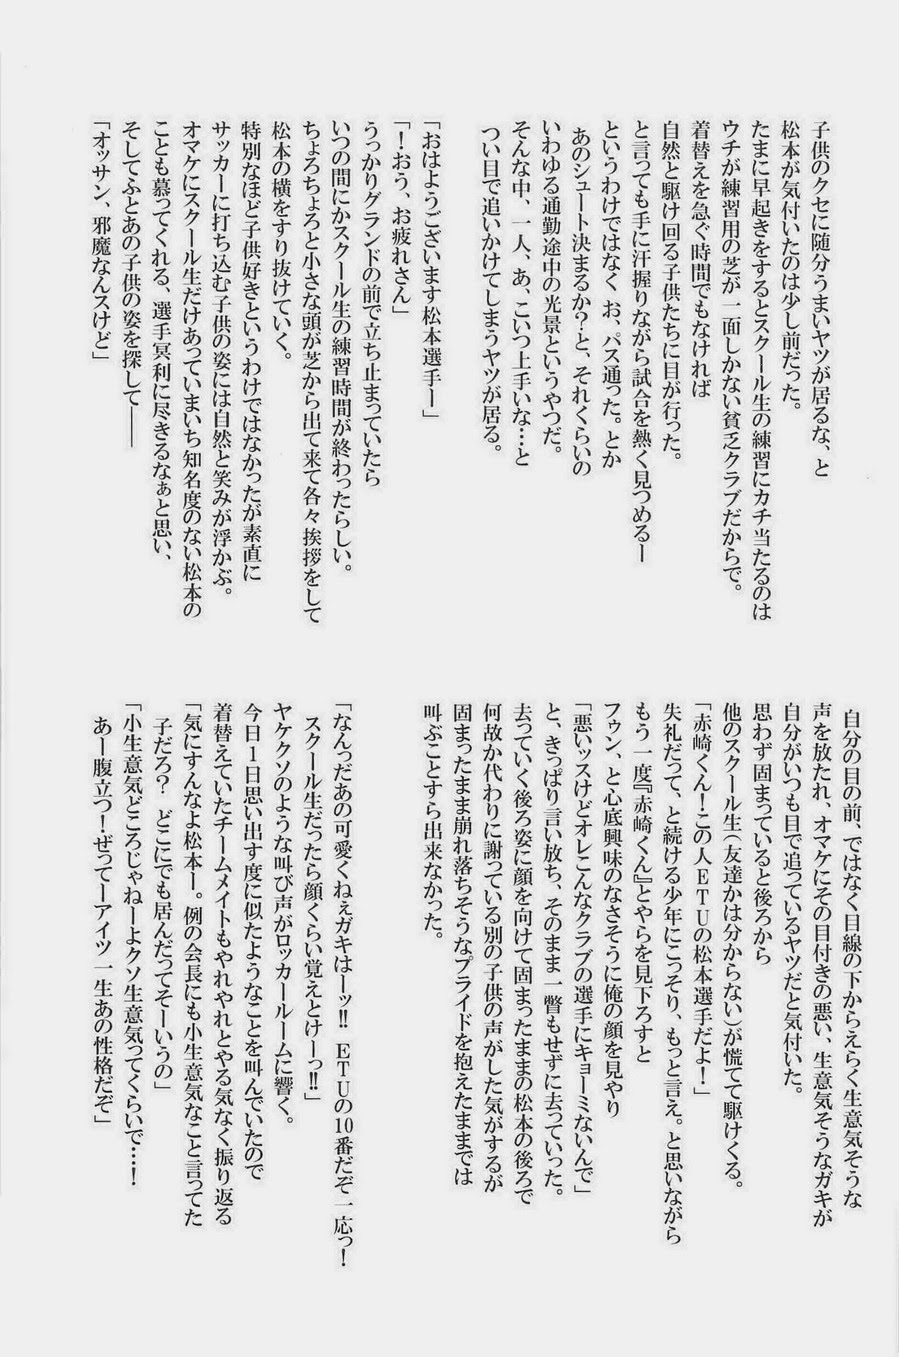 子供のクセに随分うまいヤツが居るな、と
松本が気付いたのは少し前だった。
たまに早起きをするとスクール生の練習にカチ当たるのは
ウチが練習用の芝が一面しかない貧乏クラブだからで。
着替えを急ぐ時間でもなければ
自然と駆け回る子供たちに目が行った。
と言っても手に汗握りながら試合を熱く見つめるー
というわけではなく お、パス通った。とか
あのシュート決まるか?と、それくらいの
いわゆる通勤途中の光景というやつだ。
そんな中、一人、あ、こいつ上手いな…と
つい目で追いかけてしまうヤツが居る。
「おはようございます松本選手ー」
「!おう、お疲れさん」
うっかりグランドの前で立ち止まっていたら
いつの間にかスクール生の練習時間が終わったらしい。
ちょろちょろと小さな頭が芝から出て来て各々挨拶をして
松本の横をすり抜けていく。
特別なほど子供好きというわけではなかったが素直に
サッカーに打ち込む子供の姿には自然と笑みが浮かぶ。
オマケにスクール生だけあっていまいち知名度のない松本の
ことも慕ってくれる、選手冥利に尽きるなぁと思い、
そしてふとあの子供の姿を探して――
「オッサン、邪魔なんスけど」
自分の目の前、ではなく目線の下からえらく生意気そうな
声を放たれ、オマケにその目付きの悪い、生意気そうなガキが
自分がいつも目で追っているヤツだと気付いた。
思わず固まっていると後ろから
他のスクール生(友達かは分からない)が慌てて駆けくる。
「赤崎くん!この人ETUの松本選手だよ!」
失礼だって、と続ける少年にこっそり、もっと言え。と思いながら
もう一度『赤崎くん』とやらを見下ろすと
フゥン、と心底興味のなさそうに俺の顔を見やり
「悪いッスけどオレこんなクラブの選手にキョーミないんで」
と、きっぱり言い放ち、そのまま一瞥もせずに去っていった。
去っていく後ろ姿に顔を向けて固まったままの松本の後ろで
何故か代わりに謝っている別の子供の声がした気がするが
固まったまま崩れ落ちそうなプライドを抱えたままでは
叫ぶことすら出来なかった。
「なんっだあの可愛くねぇガキはーッ!! ETUの10番だぞ一応っ!
スクール生だったら顔くらい覚えとけーっ!!」
ヤケクソのような叫び声がロッカールームに響く。
今日1日思い出す度に似たようなことを叫んでいたので
着替えていたチームメイトもやれやれとやる気なく振り返る
「気にすんなよ松本ー。例の会長にも小生意気なこと言ってた
子だろ? どこにでも居んだってそーいうの」
「小生意気どころじゃねーよクソ生意気ってくらいで…!
あー腹立つ!ぜってーアイツ一生あの性格だぞ」